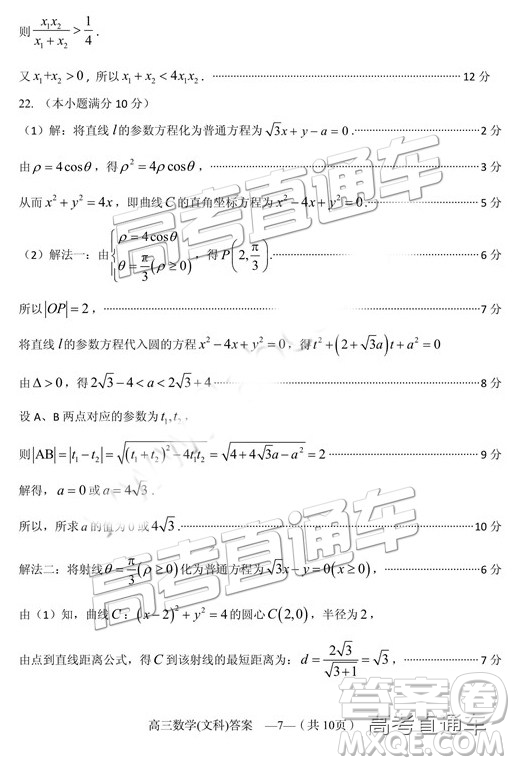 则 x₁x₂/(x₁+x₂) > 1/4 .
又 x₁+x₂>0，所以 x₁+x₂<4x₁x₂ . ………… 12 分
22. （本小题满分 10 分）
（1）解：将直线 l 的参数方程化为普通方程为 √3x+y−a=0 . ………… 2 分
由 ρ=4cosθ，得 ρ²=4ρcosθ， ………… 3 分
从而 x²+y²=4x，即曲线 C 的直角坐标方程为 x²−4x+y²=0 . ………… 5 分
（2）解法一：由 {ρ=4cosθ, θ=π/3(ρ≥0)，得 P(2, π/3) .
所以 |OP|=2， ………… 7 分
将直线 l 的参数方程代入圆的方程 x²−4x+y²=0，得 t²+(2+√3a)t+a²=0
由 Δ>0，得 2√3−4<a<2√3+4 ………… 8 分
设 A、B 两点对应的参数为 t₁,t₂，
则 |AB|=|t₁−t₂|=√((t₁+t₂)²−4t₁t₂)=√(4+4√3a−a²)=2 ………… 9 分
解得，a=0 或 a=4√3 .
所以，所求 a 的值为 0 或 4√3 . ………… 10 分
解法二：将射线 θ=π/3(ρ≥0) 化为普通方程为 √3x−y=0(x≥0)， ………… 6 分
由（1）知，曲线 C：(x−2)²+y²=4 的圆心 C(2,0)，半径为 2，
由点到直线距离公式，得 C 到该射线的最短距离为：d=2√3/√(3+1)=√3， ………… 7 分
高三数学(文科)答案 —7—（共 10页）
高考直通车
高考直通车
高考直通车
答案圈